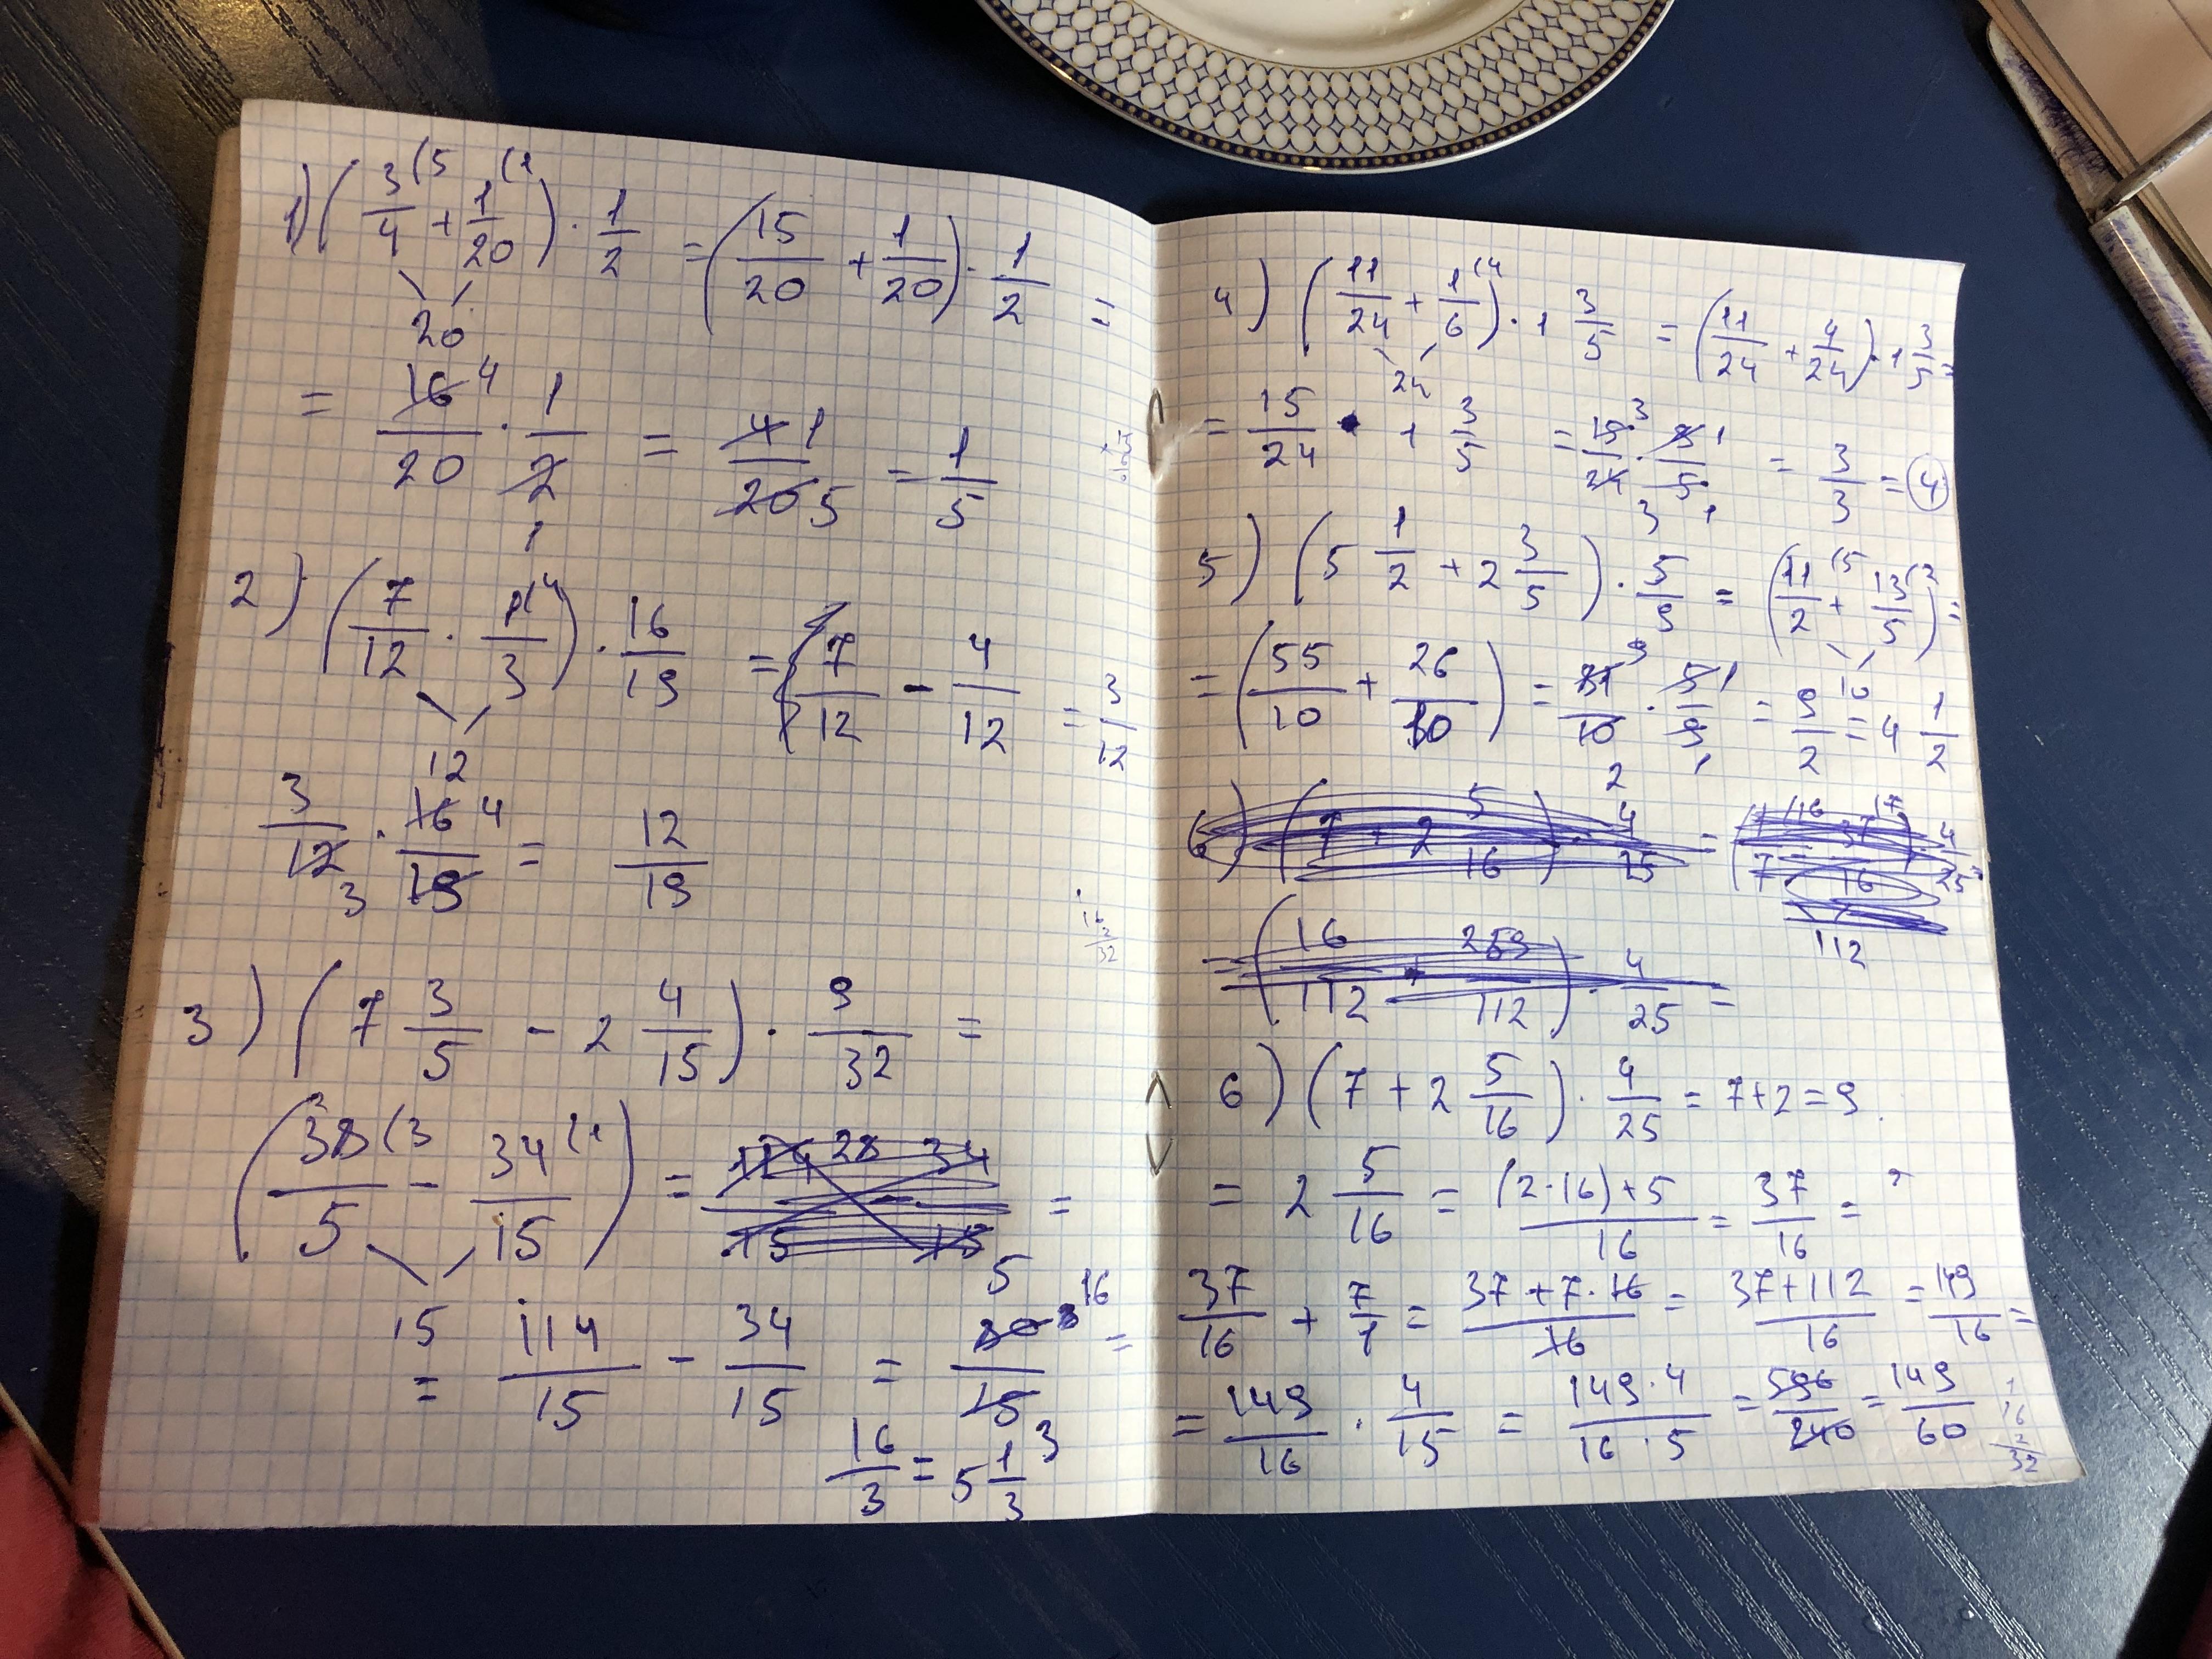 1) (3/4 (5 + 1/20 (1) · 1/2 = (15/20 + 1/20) · 1/2 =
20
= 16 4/20 · 1/2 1 = 4 1/20 5 = 1/5
2) (7/12 · 1/3 (4) · 16/19 = (7/12 - 4/12 = 3/12
12
3/12 3 · 16 4/19 = 12/19
3) (7 3/5 - 2 4/15) · 9/32 =
(38/5 (3 - 34/15 (1) = =
15
= 114/15 - 34/15 = 80 16/15 3 =
16/3 = 5 1/3
4) (11/24 + 1/6 (4) · 1 3/5 = (11/24 + 4/24) · 1 3/5 =
24
= 15/24 · 1 3/5 = 15 3/24 3 · 8 1/5 1 = 3/3 = 4
5) (5 1/2 + 2 3/5) · 5/9 = (11/2 (5 + 13/5 (2) =
10
= (55/10 + 26/10) = 81 9/10 2 · 5 1/9 1 = 9/2 = 4 1/2
6) (7 + 2 5/16) · 4/25 =
112
= (16/112 + 259/112) · 4/25 =
6) (7 + 2 5/16) · 4/25 = 7+2=9.
= 2 5/16 = (2·16)+5/16 = 37/16 =
37/16 + 7/1 = 37+7·16/16 = 37+112/16 = 149/16 =
= 149/16 · 4/15 = 149·4/16·5 = 596/240 = 149/60